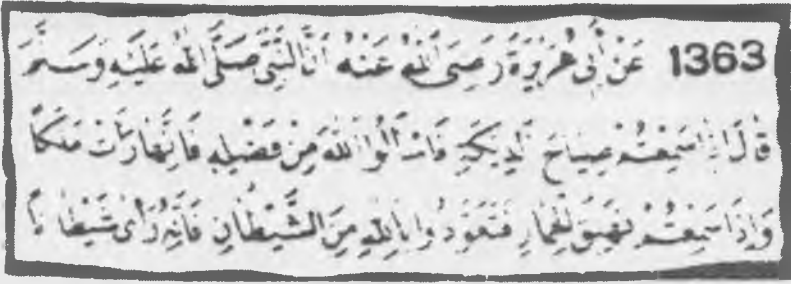 1363 عَنْ أَبِي هُرَيْرَةَ رَضِيَ اللهُ عَنْهُ أَنَّ النَّبِيَّ صَلَّى اللهُ عَلَيْهِ وَسَلَّمَ
قَالَ إِذَا سَمِعْتُمْ صِيَاحَ الدِّيَكَةِ فَاسْأَلُوا اللهَ مِنْ فَضْلِهِ فَإِنَّهَا رَأَتْ مَلَكًا
وَإِذَا سَمِعْتُمْ نَهِيقَ الْحِمَارِ فَتَعَوَّذُوا بِاللهِ مِنَ الشَّيْطَانِ فَإِنَّهُ رَأَى شَيْطَانًا